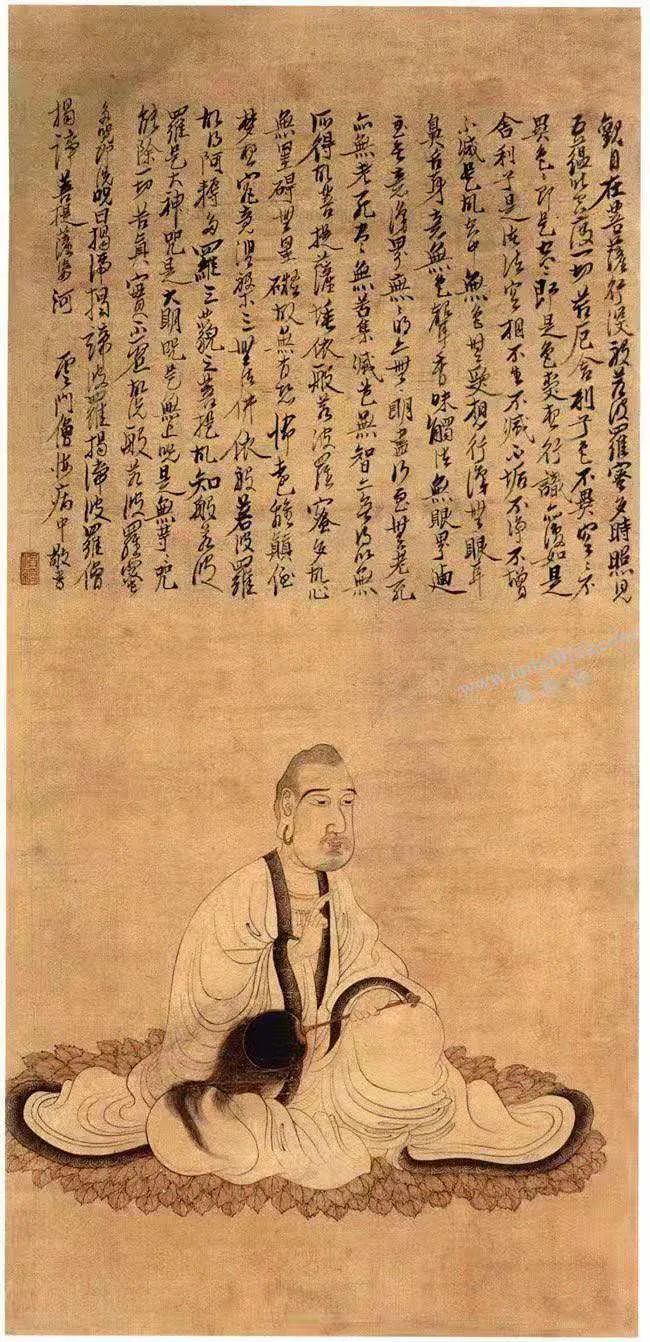 觀自在菩薩行深般若波羅蜜多時照見
五蘊皆空度一切苦厄舍利子色不異空〻不
異色〻即是空〻即是色受想行識亦復如是
舍利子是諸法空相不生不滅不垢不淨不增
不減是故空中無色無受想行識無眼耳
鼻舌身意無色聲香味觸法無眼界迺
至無意識界無〻明亦無〻明盡乃至無老死
亦無老死盡無苦集滅道無智亦無得以無
所得故菩提薩埵依般若波羅蜜多故心
無罣礙無罣礙故無有恐怖遠離顛倒
夢想究竟涅槃三世諸佛依般若波羅
故得阿耨多羅三藐三菩提故知般若波
羅是大神咒是大明咒是無上咒是無等咒
能除一切苦真實不虛故說般若波羅蜜
多咒即說咒曰揭諦揭諦波羅揭諦波羅僧
揭諦菩提薩婆訶 雲門僧悔病中敬書